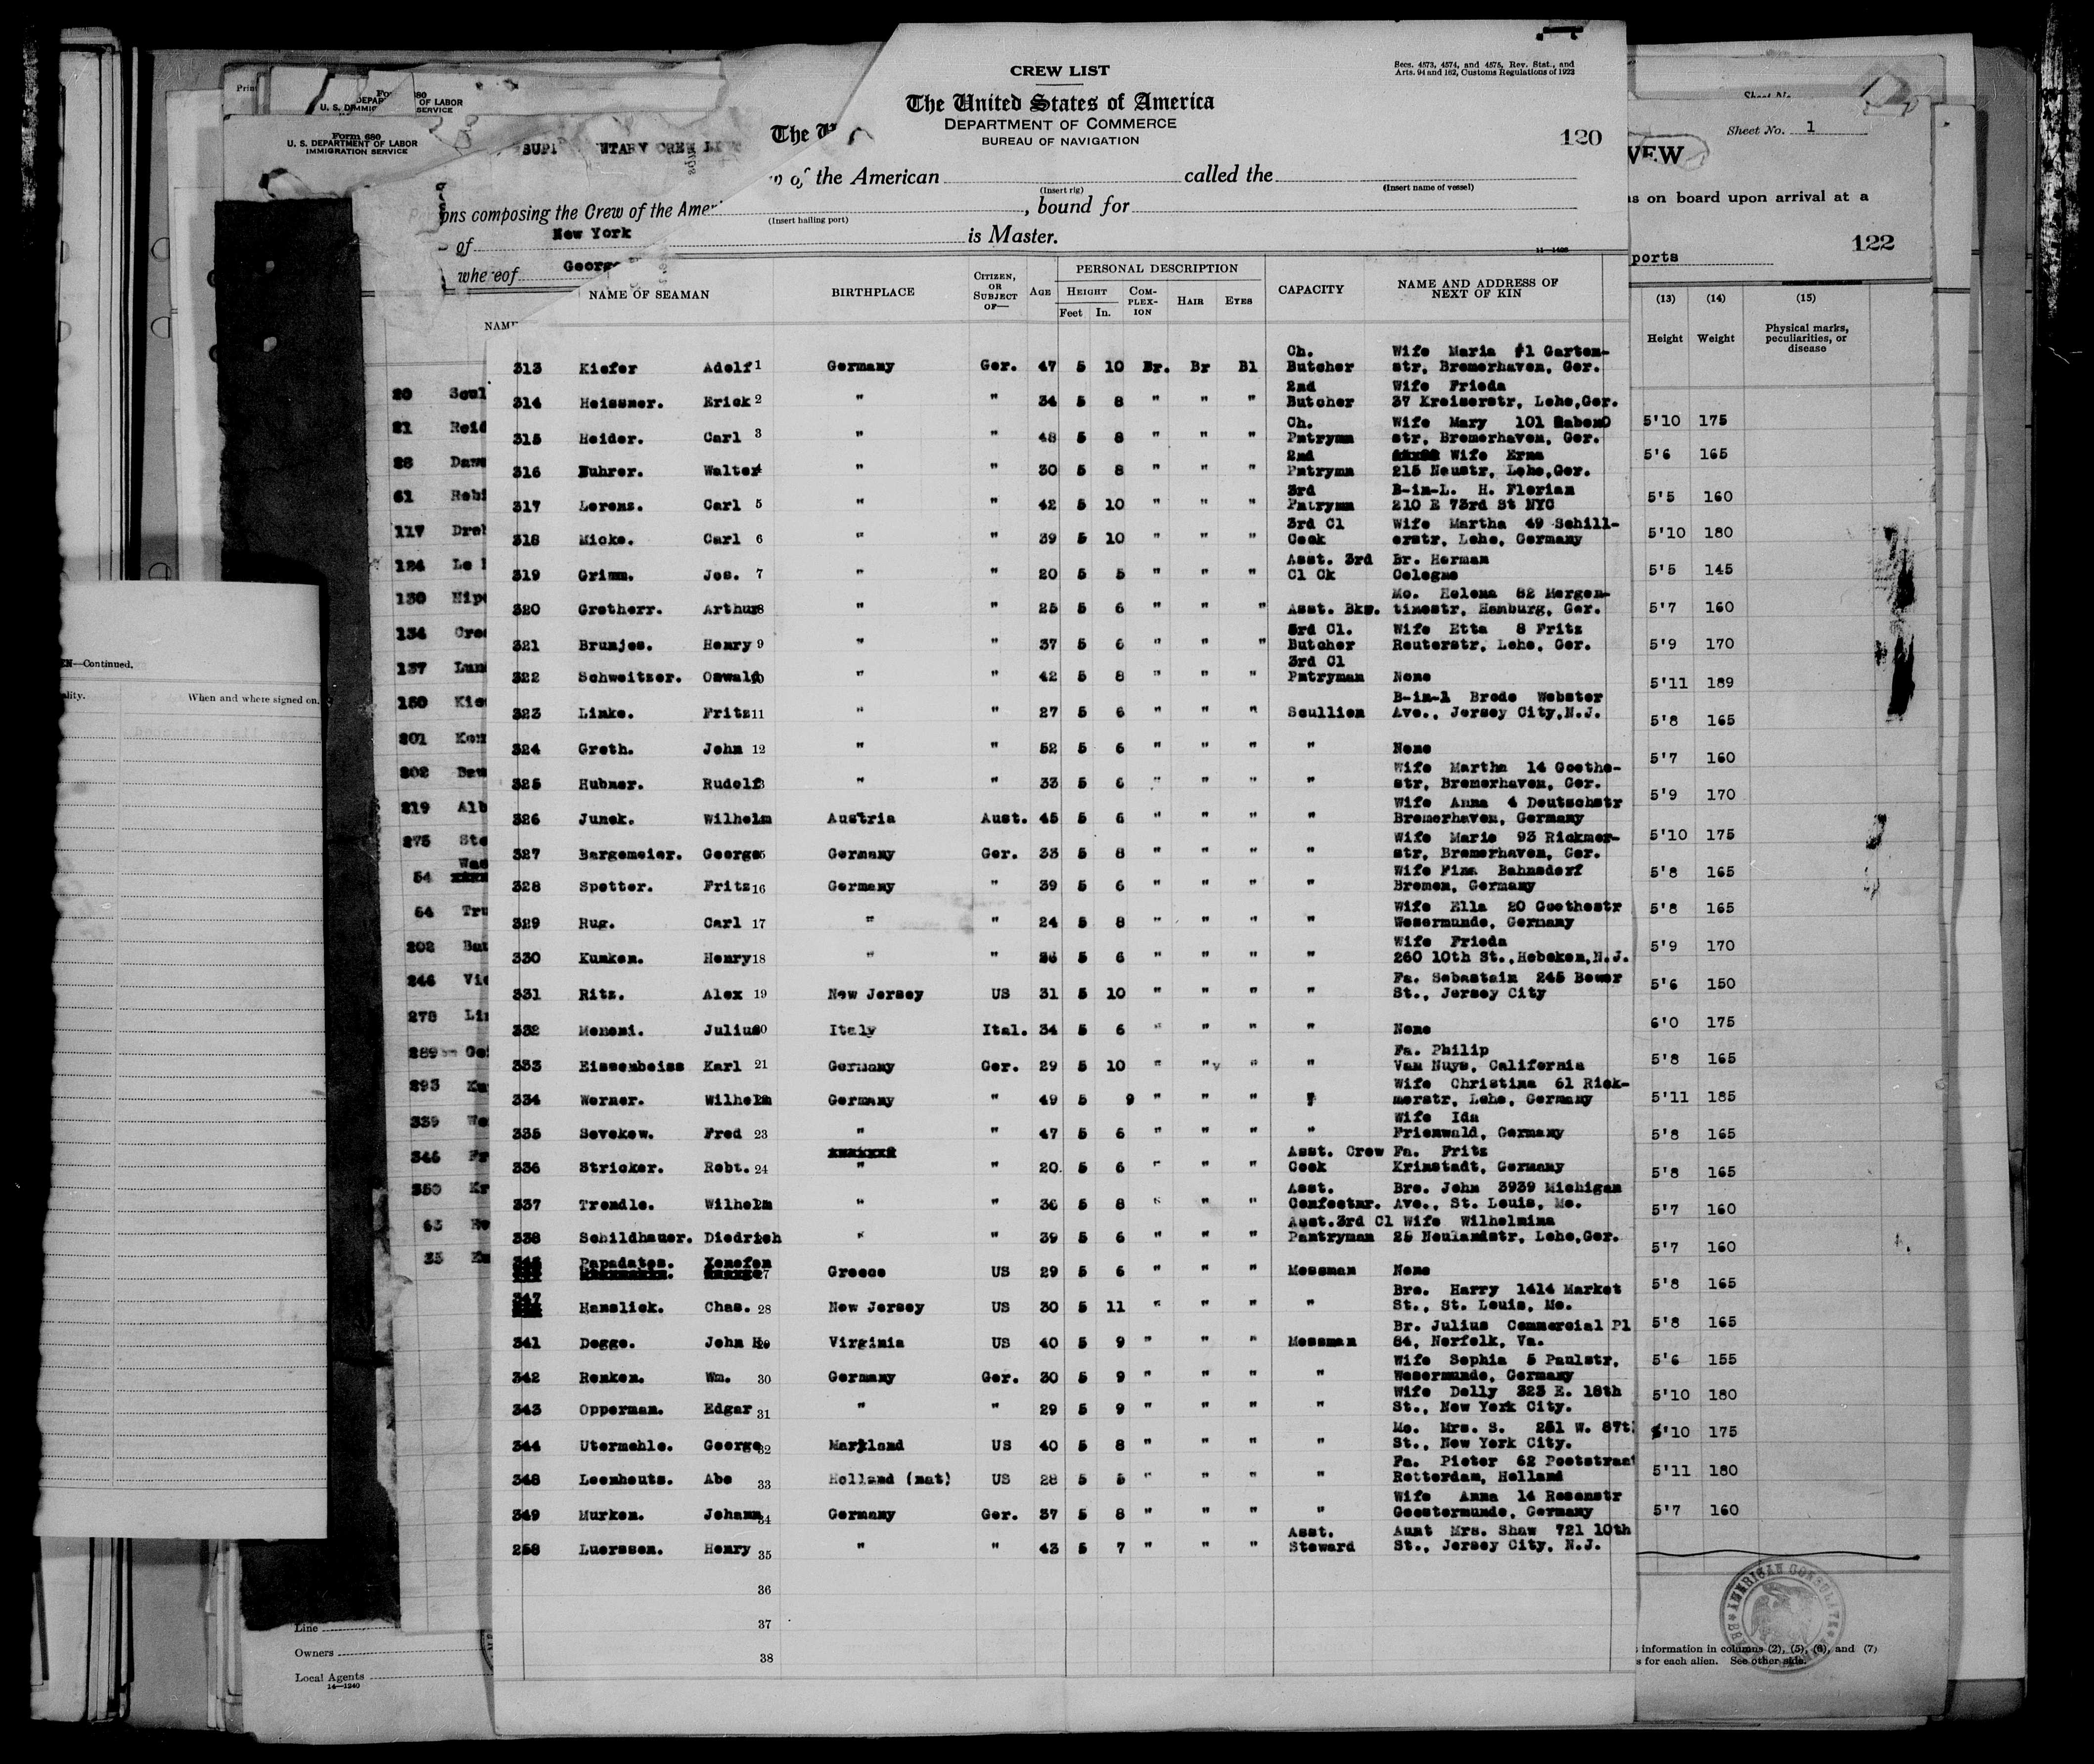 CREW LIST
Secs. 4573, 4574, and 4575, Rev. Stat., and
Arts. 94 and 162, Customs Regulations of 1923
The United States of America
DEPARTMENT OF COMMERCE
BUREAU OF NAVIGATION
120
of the American called the
(Insert rig) (Insert name of vessel)
, bound for
(Insert hailing port)
is Master.
11—1486
NAME OF SEAMAN BIRTHPLACE CITIZEN, OR SUBJECT OF— AGE PERSONAL DESCRIPTION CAPACITY NAME AND ADDRESS OF NEXT OF KIN
HEIGHT COM-PLEX-ION HAIR EYES
Feet In.
Ch. Wife Maria #1 Garten-
313 Kiefer Adolf 1 Germany Ger. 47 5 10 Br. Br Bl Butcher str, Bremerhaven, Ger.
2nd Wife Frieda
314 Heissner. Erick 2 " " 34 5 8 " " " Butcher 37 Kreiserstr, Lehe,Ger.
Ch. Wife Mary 101
315 Heider. Carl 3 " " 48 5 8 " " " Pntrymn str, Bremerhaven, Ger.
2nd Wife Erna
316 Buhrer. Walter 4 " " 30 5 8 " " " Pntrymn 215 Neustr, Lehe,Ger.
3rd B-in-L. H. Florian
317 Lorenz. Carl 5 " " 42 5 10 " " " Pntrymn 210 E 73rd St NYC
3rd Cl Wife Martha 49 Schill-
318 Micke. Carl 6 " " 39 5 10 " " " Cook erstr, Lehe, Germany
Asst. 3rd Br. Herman
319 Grimm. Jos. 7 " " 20 5 5 " " " Cl Ck Cologne
Mo. Helena 82 Mergen-
320 Gretherr. Arthur 8 " " 25 5 6 " " " Asst. Bkr. timestr, Hamburg, Ger.
3rd Cl. Wife Etta 8 Fritz
321 Brunjes. Henry 9 " " 37 5 6 " " " Butcher Reuterstr, Lehe, Ger.
3rd Cl
322 Schweitzer. Oswald 10 " " 42 5 8 " " " Pntryman None
B-in-l Brode Webster
323 Linke. Fritz 11 " " 27 5 6 " " " Scullion Ave., Jersey City,N.J.
324 Groth. John 12 " " 52 5 6 " " " " None
Wife Martha 14 Goethe-
325 Hubner. Rudolf 13 " " 33 5 6 " " " " str, Bremerhaven, Ger.
Wife Anna 4 Deutschstr
326 Junek. Wilhelm Austria Aust. 45 5 6 " " " " Bremerhaven, Germany
Wife Marie 93 Rickmer-
327 Bargemeier. George 15 Germany Ger. 33 5 8 " " " " str, Bremerhaven, Ger.
Wife Fina Bahnsdorf
328 Spotter. Fritz 16 Germany " 39 5 6 " " " " Bremen, Germany
Wife Ella 20 Goethestr
329 Rug. Carl 17 " " 24 5 8 " " " " Wesermunde, Germany
Wife Frieda
330 Kunken. Henry 18 " " 36 5 6 " " " " 260 10th St.,Hoboken,N.J.
Fa. Sebastain 245 Bower
331 Ritz. Alex 19 New Jersey US 31 5 10 " " " " St., Jersey City
332 Menoni. Julius 20 Italy Ital. 34 5 6 " " " " None
Fa. Philip
333 Eissenbeiss Karl 21 Germany Ger. 29 5 10 " " " " Van Nuys, California
Wife Christina 61 Rick-
334 Werner. Wilhelm 22 Germany " 49 5 9 " " " " merstr, Lehe, Germany
Wife Ida
335 Sevekow. Fred 23 " " 47 5 6 " " " " Frienwald, Germany
Asst. Crew Fa. Fritz
336 Stricker. Robt. 24 " " 20. 5 6 " " " Cook Krinstadt, Germany
Asst. Bro. John 3939 Michigan
337 Trondle. Wilhelm " " 36 5 8 " " " Confectnr. Ave., St. Louis, Mo.
Asst.3rd Cl Wife Wilhelmina
338 Schildhauer. Diedrich " " 39 5 6 " " " Pantryman 25 Neulandstr, Lehe,Ger.
Papadatos. Xenofon
27 Greece US 29 5 6 " " " Messman None
347 Bro. Harry 1414 Market
Hanslick. Chas. 28 New Jersey US 30 5 11 " " " " St., St. Louis, Mo.
Br. Julius Commercial Pl
341 Dogge. John H. 29 Virginia US 40 5 9 " " " Messman 84, Norfolk, Va.
Wife Sophia 5 Paulstr,
342 Renken. Wm. 30 Germany Ger. 30 5 9 " " " " Wesermunde, Germany
Wife Dolly 323 E. 18th
343 Opperman. Edgar 31 " " 29 5 9 " " " " St., New York City.
Mo. Mrs. S. 251 W. 87th
344 Utermehle. George 32 Maryland US 40 5 8 " " " " St., New York City.
Fa. Pieter 62 Pootstraat
348 Leenhouts. Abe 33 Holland (nat) US 28 5 5 " " " " Rotterdam, Holland
Wife Anna 14 Rosenstr
349 Murken. Johann 34 Germany Ger. 37 5 8 " " " " Geestermunde, Germany
Asst. Aunt Mrs. Shaw 721 10th
258 Luerssen. Henry 35 " " 43 5 7 " " " Steward St., Jersey City, N.J.
36
37
38
Form 680
U. S. DEPARTMENT OF LABOR
IMMIGRATION SERVICE
ons composing the Crew of the Amer
of New York
whereof George
20
21 Reid
28
61
117
124
130
134
137
180
201
202
219
275
54
64
202
246
278
289
293
339
346
350
63
35
—Continued.
When and where signed on.
Line
Owners
Local Agents
14—1240
Sheet No. 1
on board upon arrival at a
122
ports
(13) (14) (15)
Height Weight Physical marks, peculiarities, or disease
5'10 175
5'6 165
5'5 160
5'10 180
5'5 145
5'7 160
5'9 170
5'11 189
5'8 165
5'7 160
5'9 170
5'10 175
5'8 165
5'8 165
5'9 170
5'6 150
6'0 175
5'8 165
5'11 185
5'8 165
5'8 165
5'7 160
5'7 160
5'8 165
5'8 165
5'6 155
5'10 180
5'10 175
5'11 180
5'7 160
AMERICAN CONSULATE
information in columns (2), (5), (6), and (7)
for each alien. See other side.